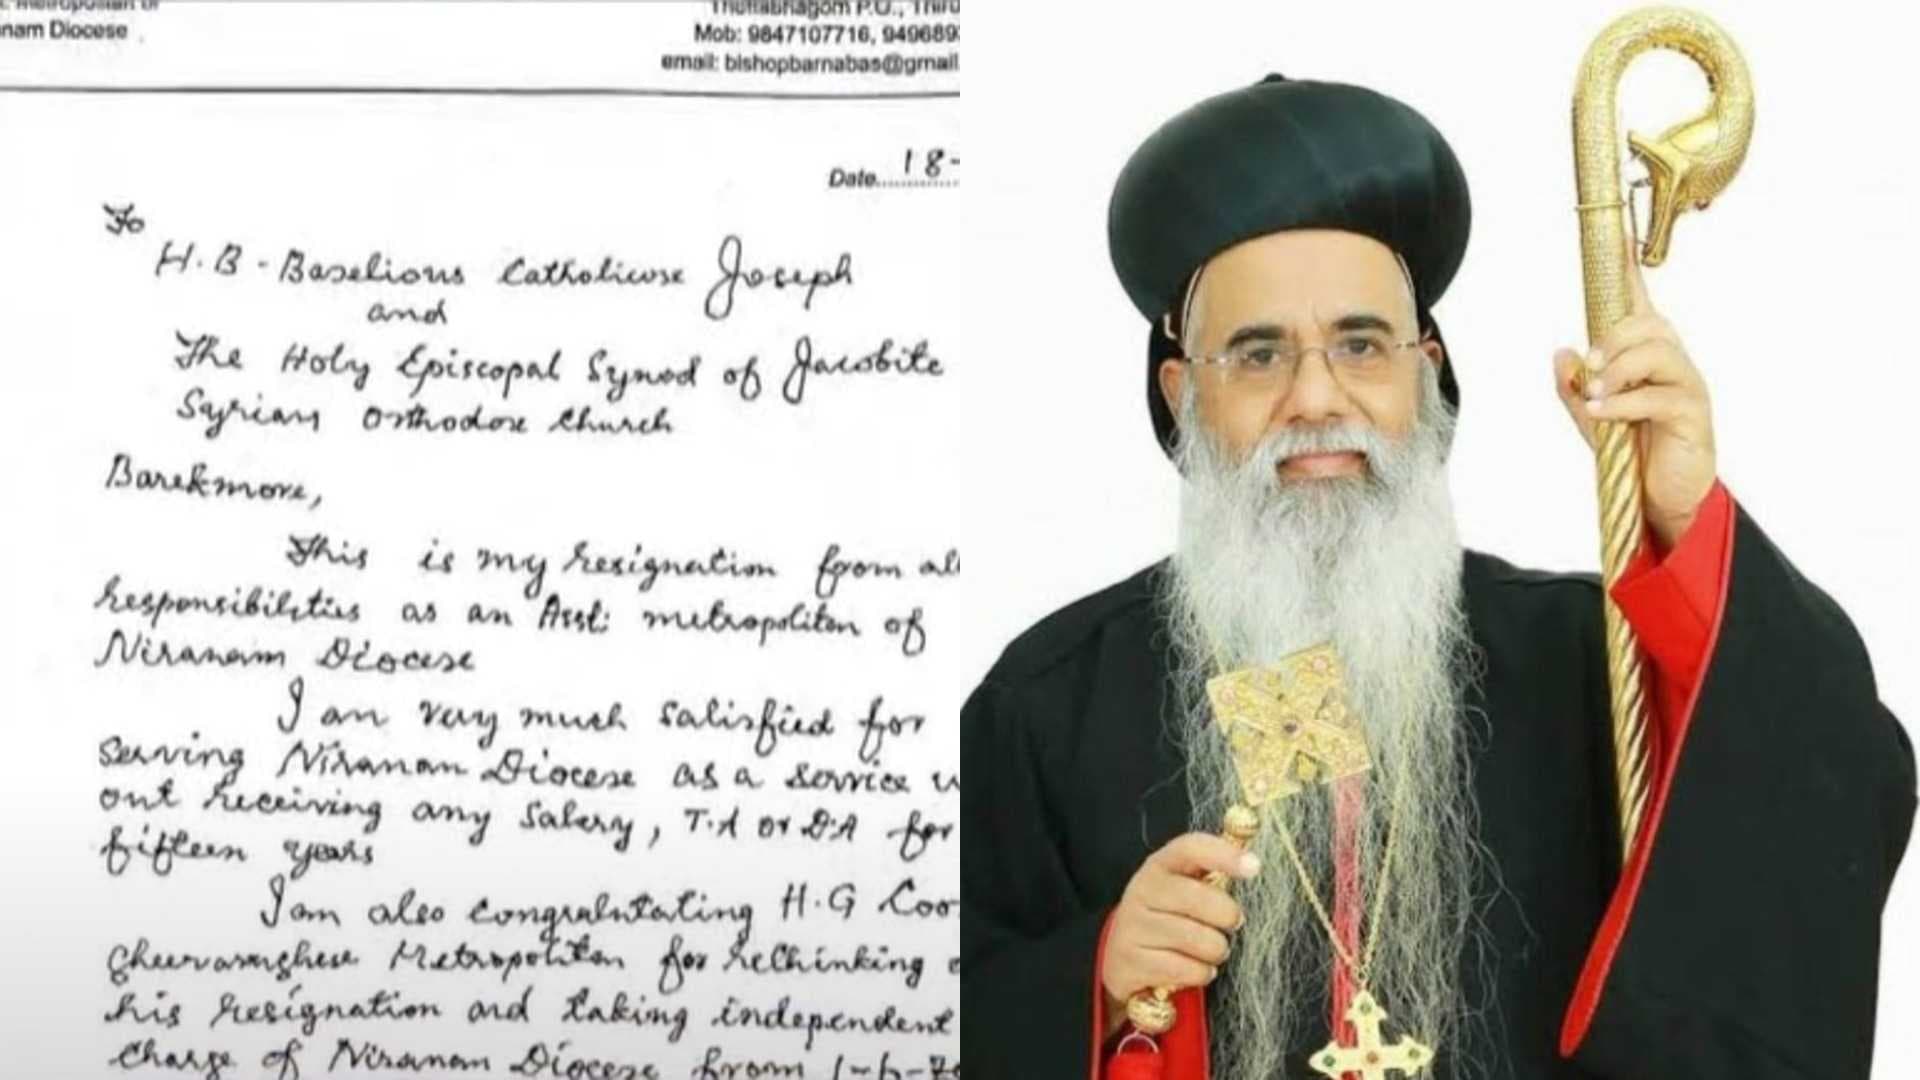 nam Diocese
Thuttabhagom P.O.,
Mob: 9847107716, 949689
email: bishopbarnabas@gmail
Date........18-
To
H.B - Baselious Catholicose Joseph
and
The Holy Episcopal Synod of Jacobite
Syrian Orthodox Church
Barekmore,
This is my resignation from al
responsibilities as an Asst: metropolitan of
Niranam Diocese
I am very much satisfied for
serving Niranam Diocese as a service w
out receiving any salary, T.A or D.A for
fifteen years
I am also congralutating H.G Coo
Gheevarughese Metropolitan for rethinking
his resignation and taking independent
charge of Niranam Diocese from 1-6-20